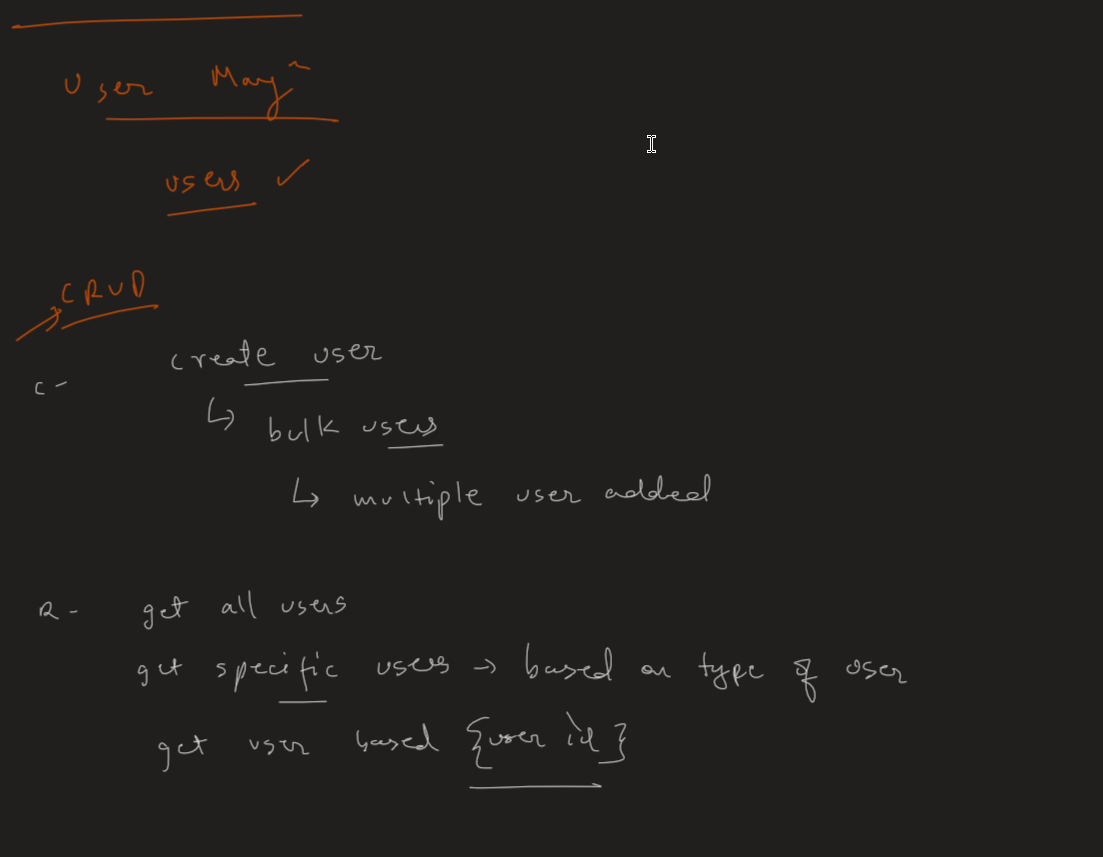 User Mang
users ✓
CRUD
C - create user
↳ bulk users
↳ multiple user added
R - get all users
get specific users → based on type of user
get user based {user id}